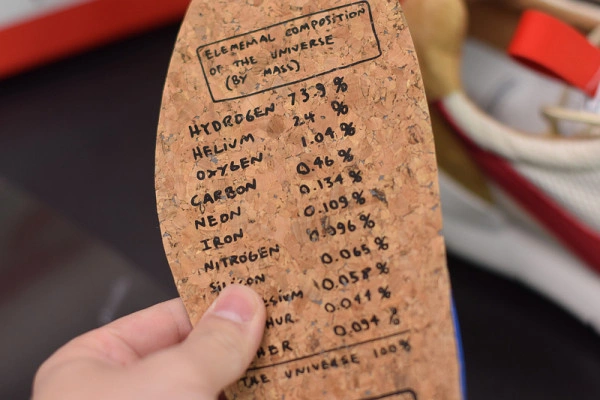 ELEMEMAL COMPOSITION
OF THE UNIVERSE
(BY MASS)
HYDROGEN 73.9 %
HELIUM 24. %
OXYGEN 1.04 %
CARBON 0.46 %
NEON 0.134 %
IRON 0.109 %
NITROGEN 0.096 %
SILICON 0.065 %
ESIUM 0.058 %
HUR 0.044 %
HER 0.094 %
THE UNIVERSE 100%